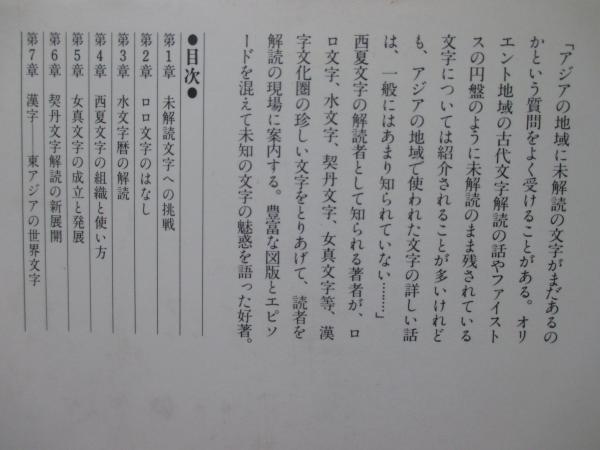 「アジアの地域に未解読の文字がまだあるの
かという質問をよく受けることがある。オリ
エント地域の古代文字解読の話やファイスト
スの円盤のように未解読のまま残されている
文字については紹介されることが多いけれど
も、アジアの地域で使われた文字の詳しい話
は、一般にはあまり知られていない………」
西夏文字の解読者として知られる著者が、ロ
ロ文字、水文字、契丹文字、女真文字等、漢
字文化圏の珍しい文字をとりあげて、読者を
解読の現場に案内する。豊富な図版とエピソ
ードを混えて未知の文字の魅惑を語った好著。
●目次●
第1章 未解読文字への挑戦
第2章 ロロ文字のはなし
第3章 水文字暦の解読
第4章 西夏文字の組織と使い方
第5章 女真文字の成立と発展
第6章 契丹文字解読の新展開
第7章 漢字──東アジアの世界文字